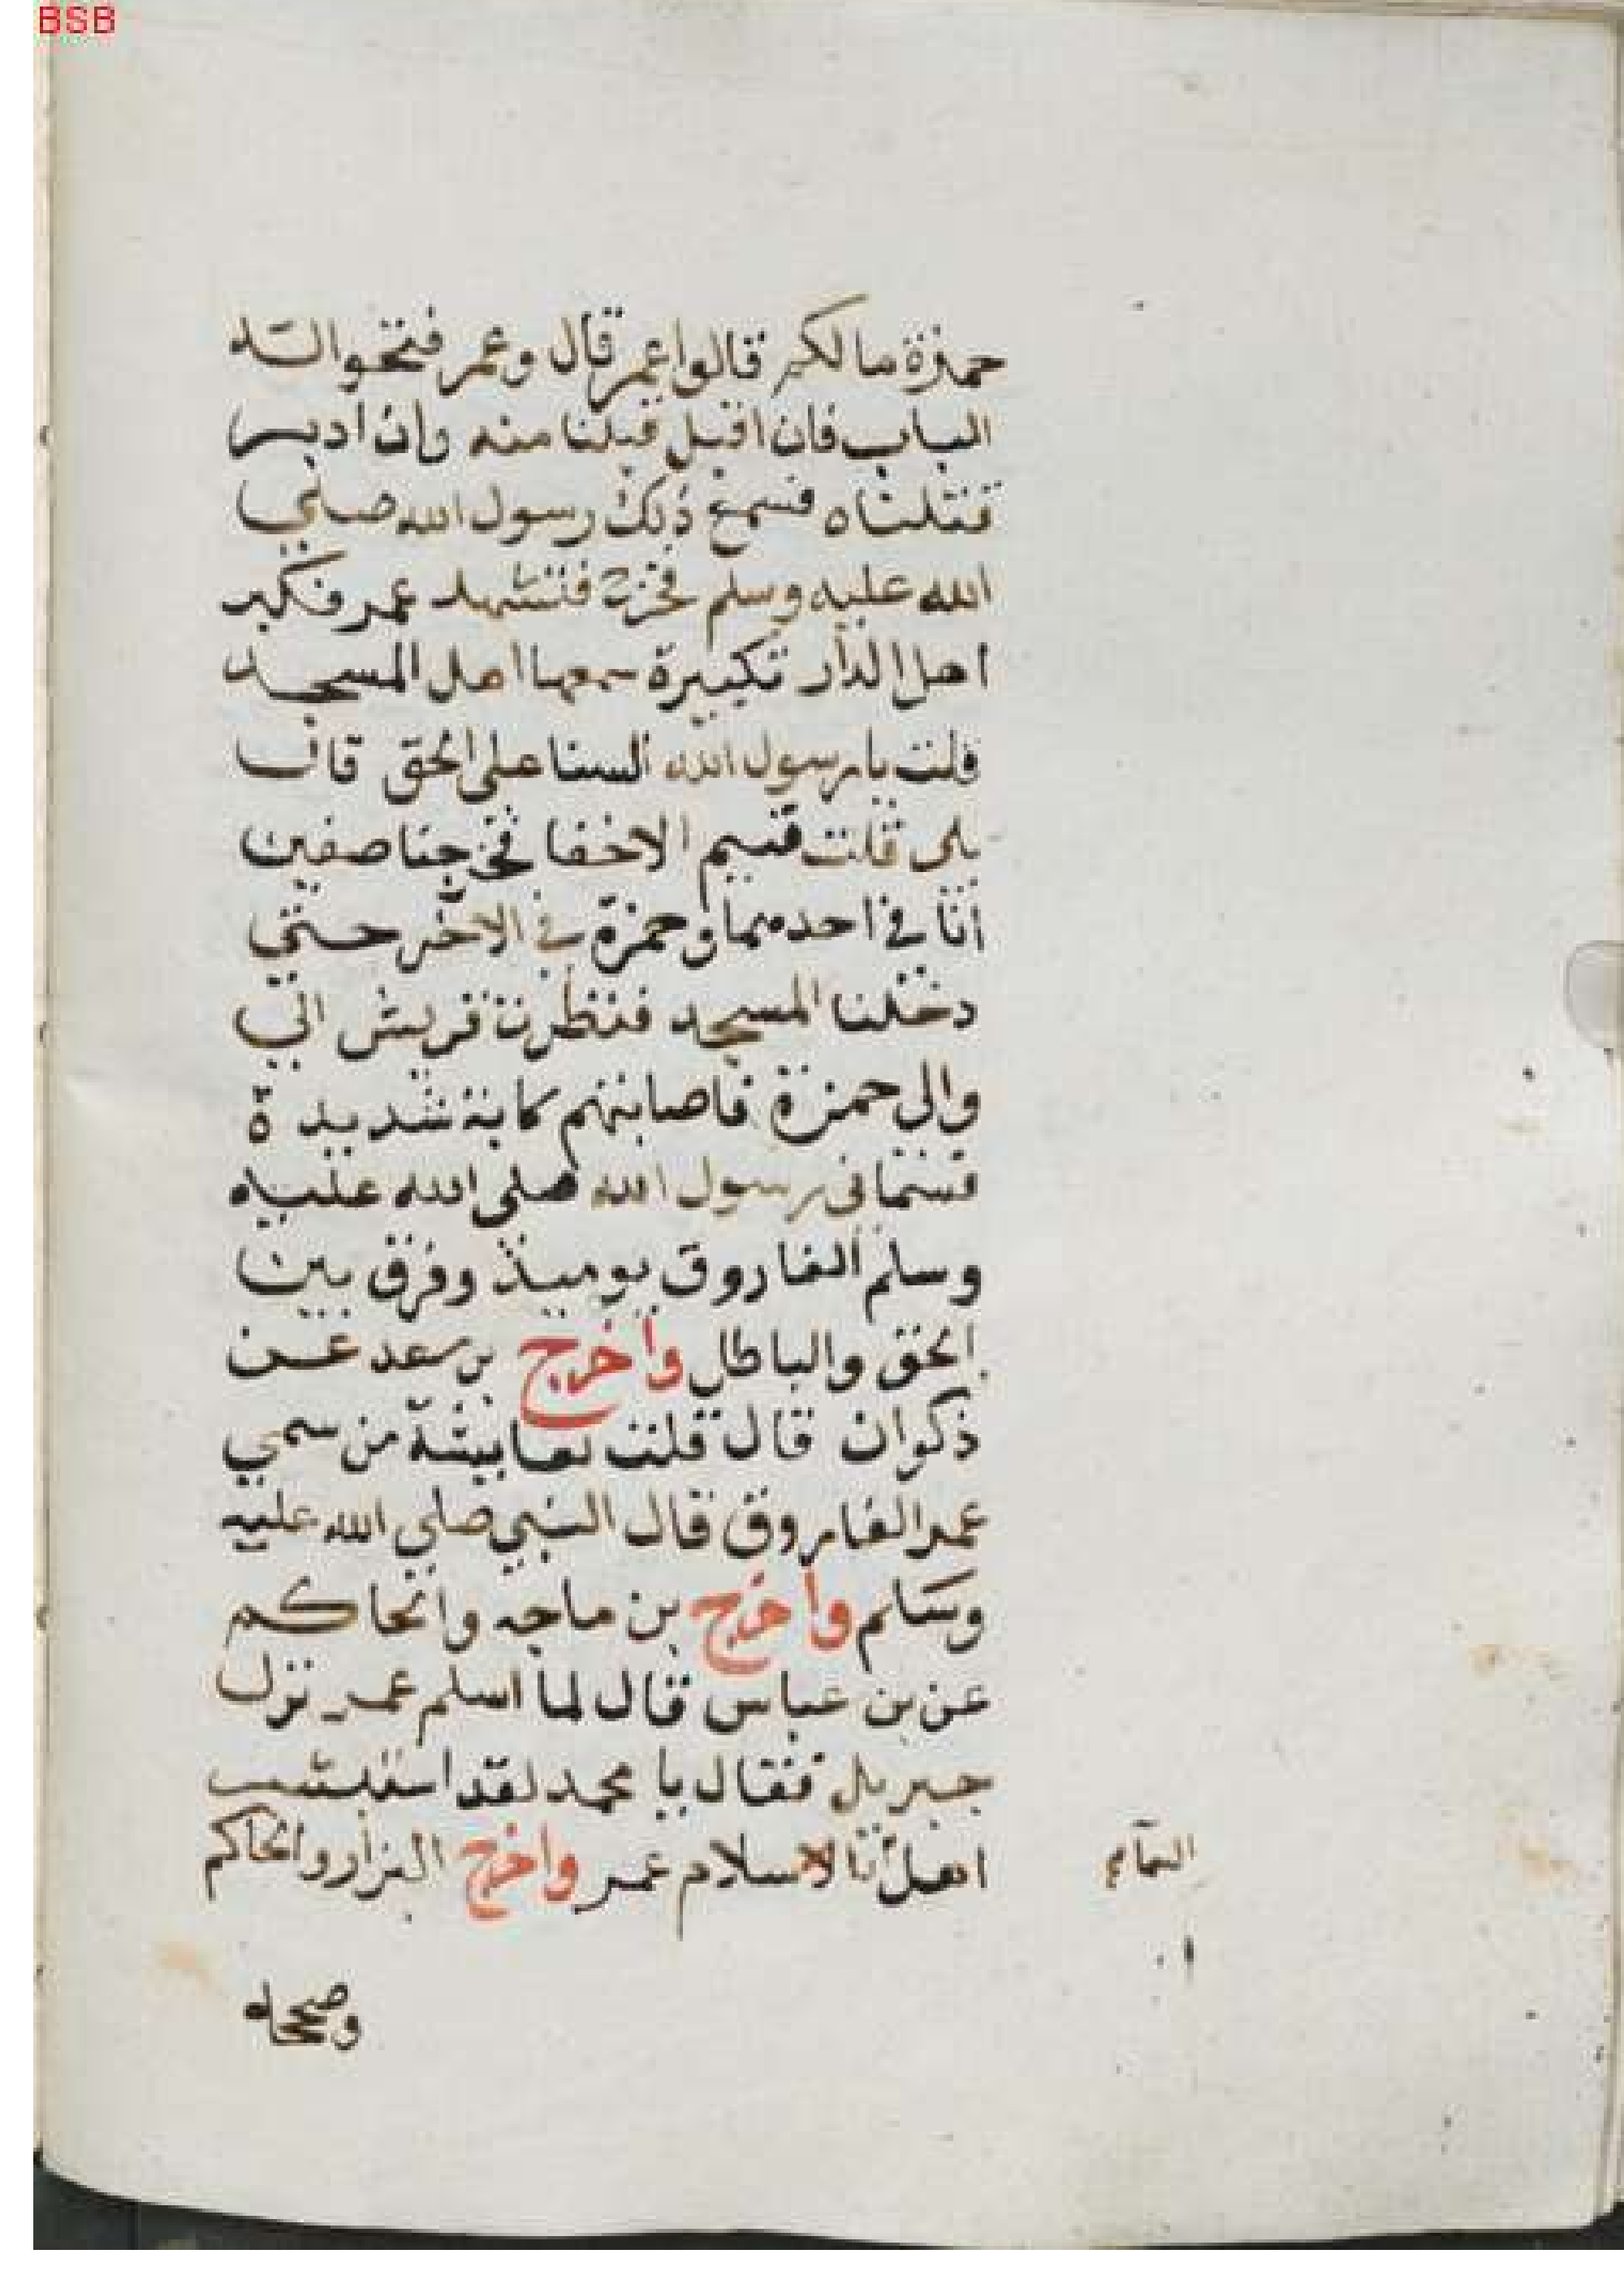 BSB
حمزة مالكم قالوا عمر قال وعمر فتحوا له
الباب فان اقبل قبلنا منه وان ادبر
قتلناه فسمع ذلك رسول الله صلي
الله عليه وسلم فخرج فتشهد عمر فكبر
اهل الدار تكبيرة سمعها اهل المسجد
قلت يا رسول الله السنا على الحق قال
بلى قلت ففيم الاخفا فخرجنا صفين
انا في احدهما وحمزة في الاخر حتي
دخلنا المسجد فنظرت قريش الي
والى حمزة فاصابتهم كابة شديدة
فسماني رسول الله صلي الله عليه
وسلم الفاروق يوميذ وفرق بين
الحق والباطل واخرج بن سعد عن
ذكوان قال قلت لعايشة من سمي
عمر الفاروق قال النبي صلي الله عليه
وسلم واخرج بن ماجه والحاكم
عن بن عباس قال لما اسلم عمر نزل
جبريل فقال يا محمد لقد استبشر
اهل الاسلام عمر واخرج البزار والحاكم
وصححاه